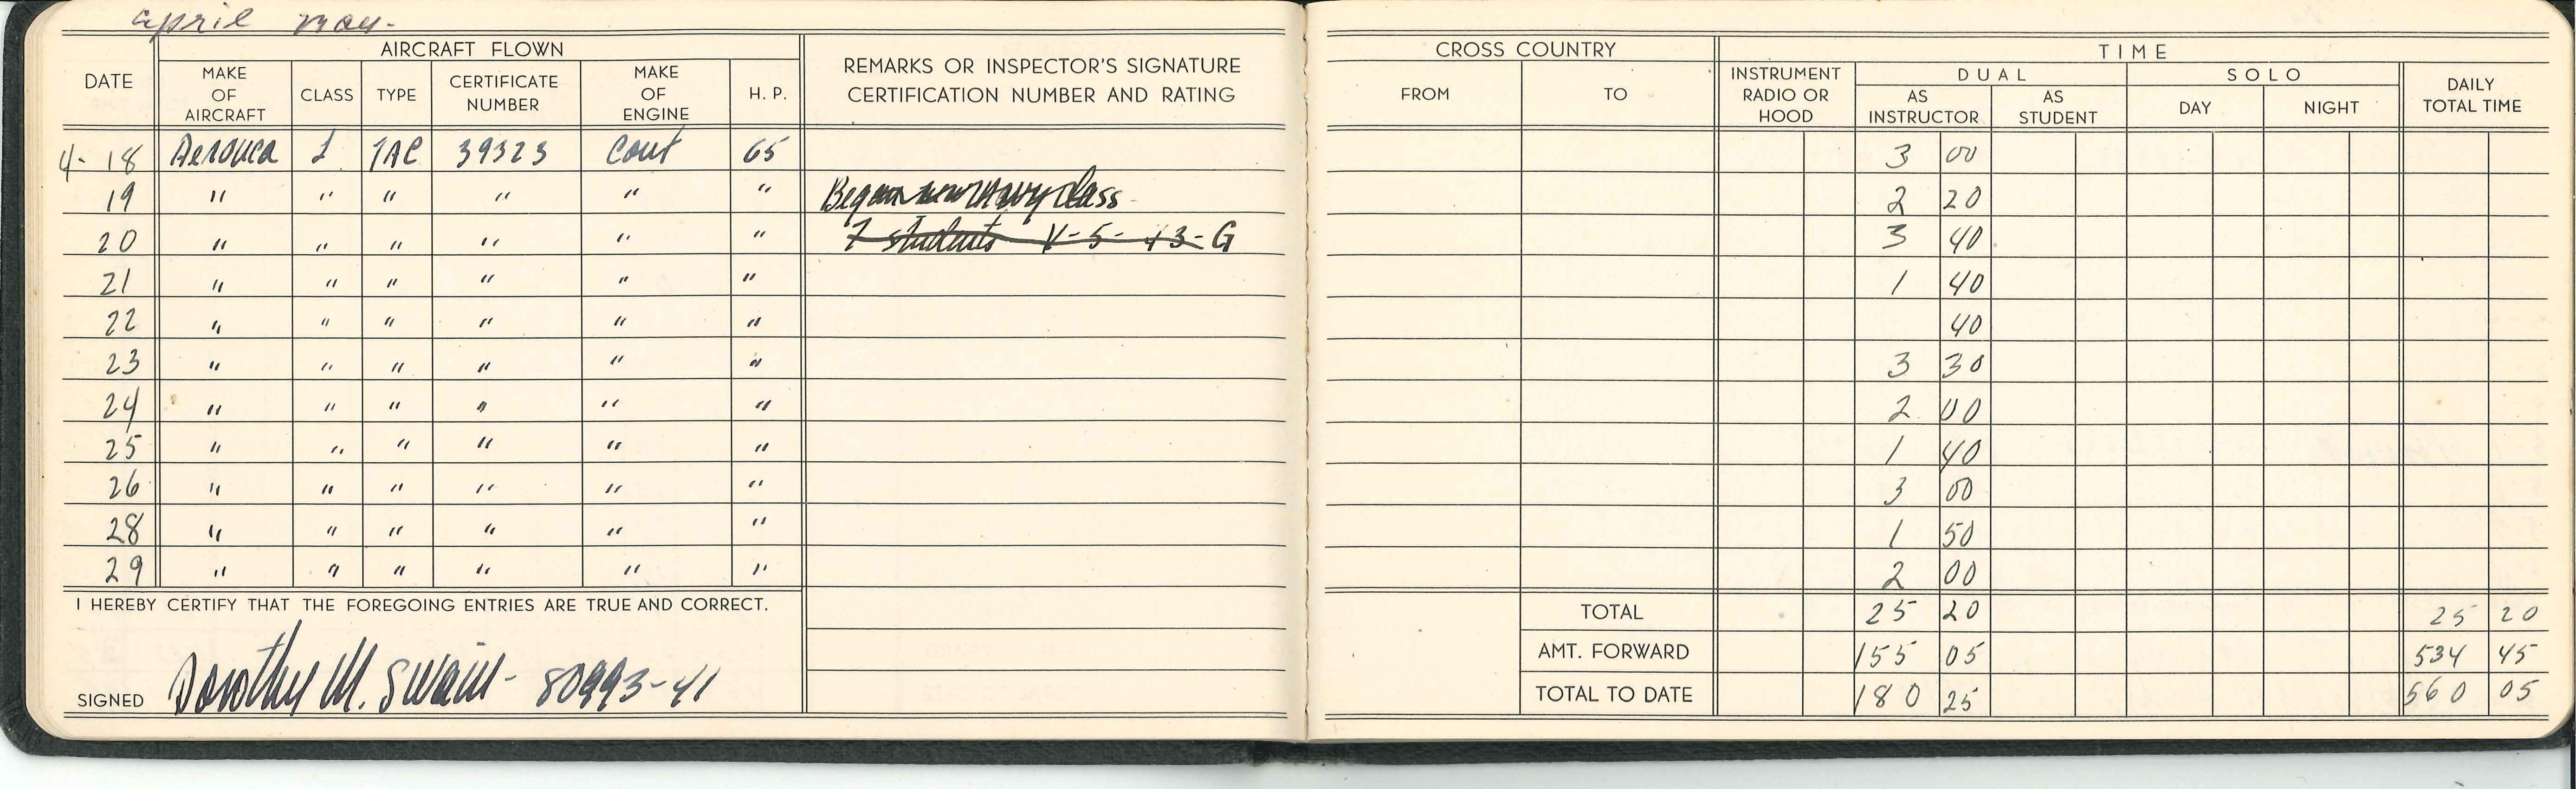 april may-
AIRCRAFT FLOWN
DATE MAKE OF AIRCRAFT CLASS TYPE CERTIFICATE NUMBER MAKE OF ENGINE H. P. REMARKS OR INSPECTOR'S SIGNATURE CERTIFICATION NUMBER AND RATING
CROSS COUNTRY TIME
FROM TO INSTRUMENT RADIO OR HOOD DUAL SOLO DAILY TOTAL TIME
AS INSTRUCTOR AS STUDENT DAY NIGHT
4-18 Aeronca 1 7AC 39323 Cont 65 3 00
19 " " " " " " Began new Navy class 2 20
20 " " " " " " 7 students V-5- 43-G 3 40
21 " " " " " " 1 40
22 " " " " " " 40
23 " " " " " " 3 30
24 " " " " " " 2 00
25 " " " " " " 1 40
26 " " " " " " 3 00
28 " " " " " " 1 50
29 " " " " " " 2 00
I HEREBY CERTIFY THAT THE FOREGOING ENTRIES ARE TRUE AND CORRECT.
SIGNED Dorothy M. Swain - 80993-41
TOTAL 25 20 25 20
AMT. FORWARD 155 05 534 45
TOTAL TO DATE 180 25 560 05